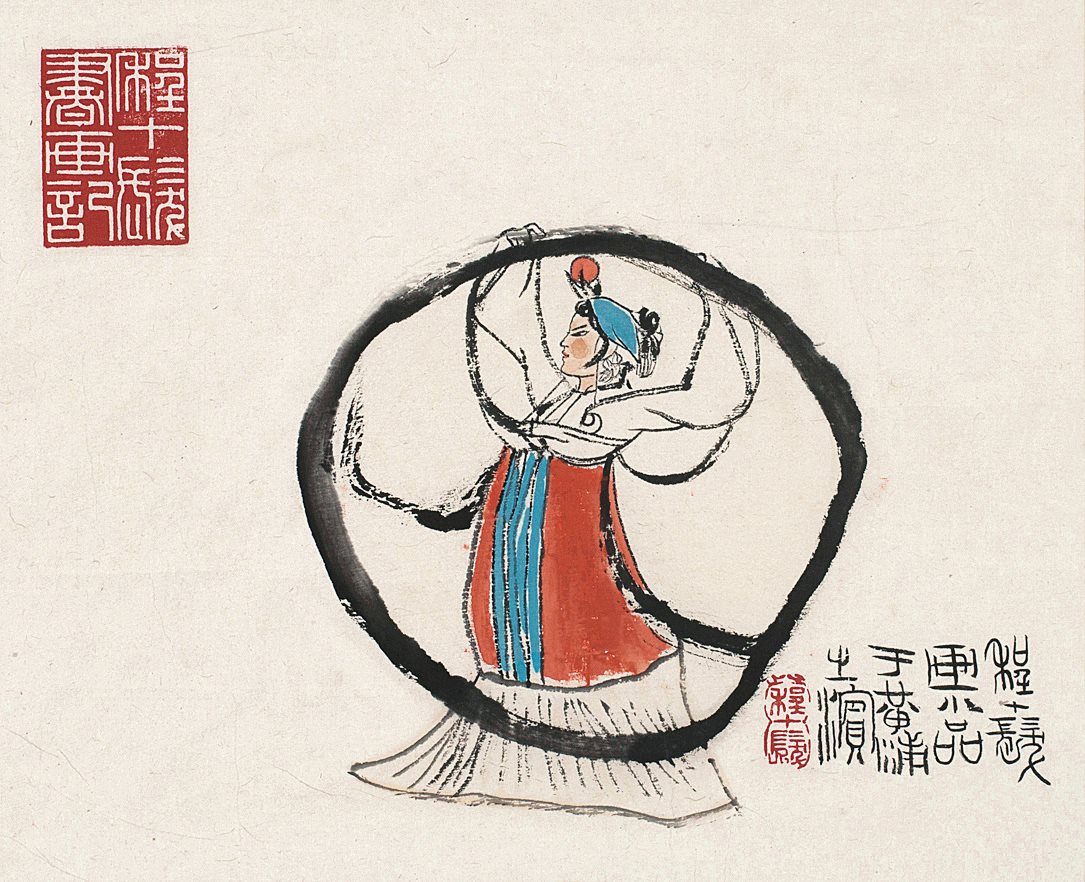 程十髮
書画記
程十髮
画小品
于黄浦
之濱
程十髮